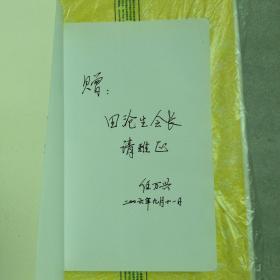 赠：
田沧生会长
请雅正
任万兴
二〇〇六年九月十一日